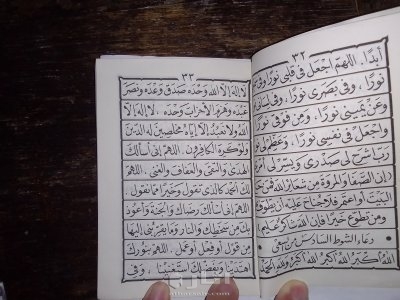 ٣٢
أبدًا. اللهم اجعل في قلبي نورًا، وفي
نورًا، وفي بصري نورًا، وفي لساني
وعن يميني نورًا، ومن فوقي نورًا
واجعل في نفسي نورًا، وعظم لي
رب اشرح لي صدري ويسر لي
﴿إن الصفا والمروة من شعائر الله فمن
البيت أو اعتمر فلا جناح عليه أن يطوف
ومن تطوع خيرا فإن الله شاكر عليم﴾
• دعاء الشوط السادس من سعي
الله أكبر الله أكبر الله أكبر ولله الحمد
٣٣
لا إله إلا الله وحده صدق وعده ونصر
عبده وهزم الأحزاب وحده، لا إله إلا
الله ولا نعبد إلا إياه مخلصين له الدين
ولو كره الكافرون. اللهم إني أسألك
الهدى والتقى والعفاف والغنى. اللهم
لك الحمد كالذي نقول وخيرًا مما نقول.
اللهم إني أسألك رضاك والجنة وأعوذ
بك من سخطك والنار وما يقربني إليها
من قول أو فعل أو عمل. اللهم بنورك
اهتدينا وبفضلك استغنينا، وفي